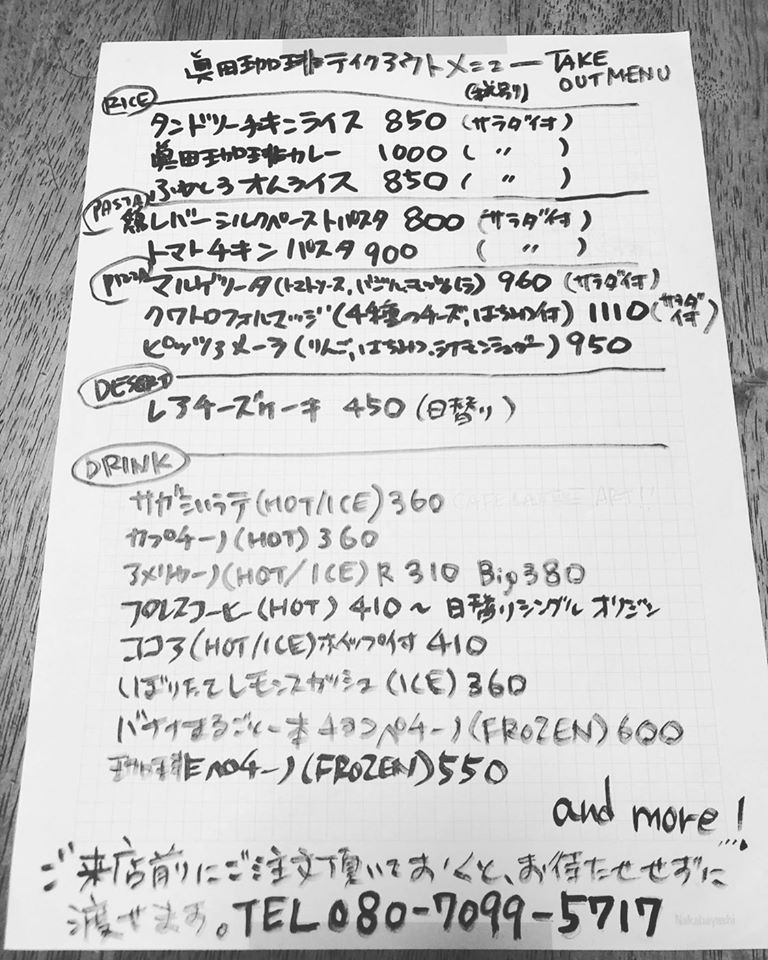 眞田珈琲テイクアウトメニュー TAKE OUT MENU
(税別)
RICE
タンドリーチキンライス 850 (サラダ付)
眞田珈琲カレー 1000 ( 〃 )
ふわとろオムライス 850 ( 〃 )
PASTA
鶏レバーシルクペーストパスタ 800 (サラダ付)
トマトチキンパスタ 900 ( 〃 )
PIZZA
マルゲリータ(トマトソース,バジル,モッツァレラ) 960 (サラダ付)
クワトロフォルマッジ(4種のチーズ,はちみつ付) 1110 (サラダ付)
ピッツァメーラ(りんご,はちみつ,シナモンシュガー) 950
DESERT
レアチーズケーキ 450 (日替り)
DRINK
(HOT/ICE) 360
カプチーノ(HOT) 360
アメリカーノ(HOT/ICE) R 310 Big 380
プレスコーヒー(HOT) 410~ 日替りシングルオリジン
ココア(HOT/ICE)ホイップ付 410
しぼりたてレモンスカッシュ(ICE) 360
バナナまるごと一本チョコペチーノ(FROZEN) 600
珈琲ペチーノ(FROZEN) 550
and more!
ご来店前にご注文頂いておくと、お待たせせずに
渡せます。TEL 080-7099-5717
Nakabayashi